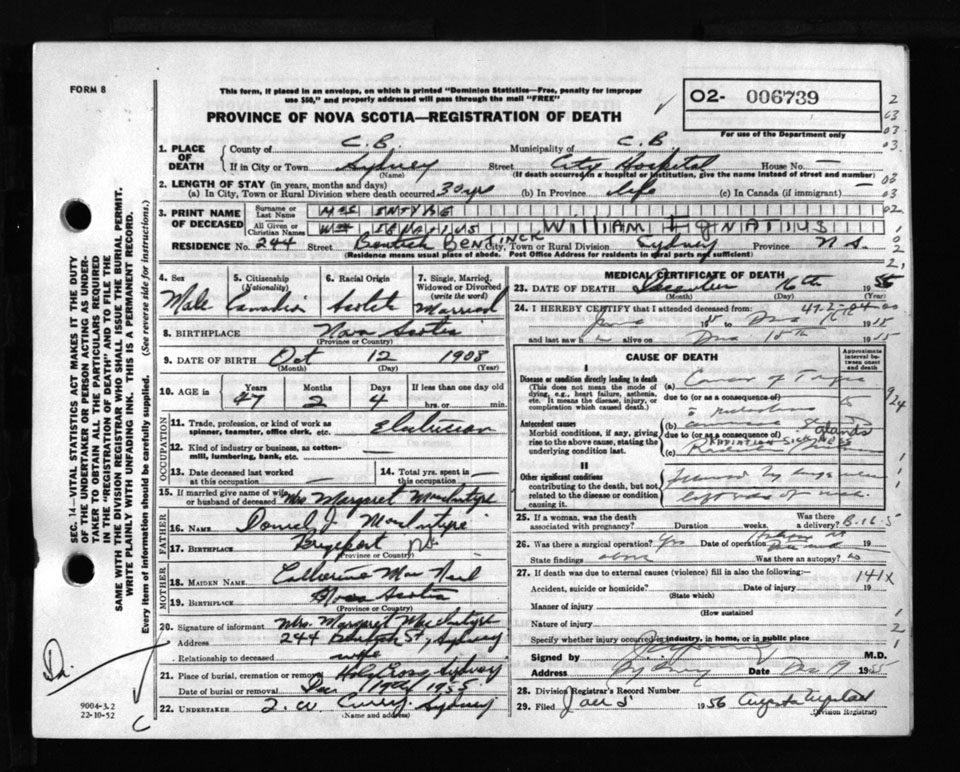 FORM 8
This form, if placed in an envelope, on which is printed "Dominion Statistics—Free, penalty for improper
use $50," and properly addressed will pass through the mail "FREE"
PROVINCE OF NOVA SCOTIA—REGISTRATION OF DEATH
O2- 006739
For use of the Department only
1. PLACE OF DEATH
County of C.B. Municipality of C.B
If in City or Town Sydney Street City Hospital House No. —
(Name) (If death occurred in a hospital or institution, give the name instead of street and number)
2. LENGTH OF STAY (in years, months and days)
(a) In City, Town or Rural Division where death occurred 30 yrs (b) In Province life (c) In Canada (if immigrant) —
3. PRINT NAME OF DECEASED
Surname or Last Name Mac INTYRE
All Given or Christian Names Wm IGNATIUS WILLIAM IGNATIUS
RESIDENCE No. 244 Street Bentick BENTINCK City, Town or Rural Division Sydney Province N.S.
(Residence means usual place of abode. Post Office Address for residents in rural parts not sufficient)
4. Sex Male
5. Citizenship (Nationality) Canadian
6. Racial Origin Scotch
7. Single, Married, Widowed or Divorced (write the word) Married
8. BIRTHPLACE Nova Scotia
(Province or Country)
9. DATE OF BIRTH Oct 12 1908
(Month) (Day) (Year)
10. AGE in Years Months Days If less than one day old
47 2 4 hrs. or min.
OCCUPATION
11. Trade, profession, or kind of work as spinner, teamster, office clerk, etc. Electrician
12. Kind of industry or business, as cotton-mill, lumbering, bank, etc.
13. Date deceased last worked at this occupation —
14. Total yrs. spent in this occupation —
15. If married give name of wife or husband of deceased Mrs. Margaret MacIntyre
FATHER
16. NAME Daniel J. MacIntyre
17. BIRTHPLACE NS
(Province or Country)
MOTHER
18. MAIDEN NAME Catherine MacNeil
19. BIRTHPLACE Nova Scotia
(Province or Country)
20. Signature of informant Mrs. Margaret MacIntyre
Address 244 Bentick St, Sydney
Relationship to deceased wife
21. Place of burial, cremation or removal Holy Cross Sydney
Date of burial or removal Dec 19th 1955
22. UNDERTAKER T. W. Curry, Sydney
(Name and address)
MEDICAL CERTIFICATE OF DEATH
23. DATE OF DEATH December 16th 1955
(Month) (Day) (Year)
24. I HEREBY CERTIFY that I attended deceased from:
June to Dec 16 1955
and last saw h alive on Dec 1955
CAUSE OF DEATH
Approximate interval between onset and death
I
Disease or condition directly leading to death
(This does not mean the mode of dying, e.g., heart failure, asthenia, etc. It means the disease, injury, or complication which caused death.)
(a) Cancer of
due to (or as a consequence of)
Antecedent causes
Morbid conditions, if any, giving rise to the above cause, stating the underlying condition last.
(b) glands
due to (or as a consequence of)
RADIATION SICKNESS
(c)
II
Other significant conditions
contributing to the death, but not related to the disease or condition causing it.
25. If a woman, was the death associated with pregnancy? Duration weeks. Was there a delivery? B-16-5
26. Was there a surgical operation? Yes Date of operation 19
State findings above Was there an autopsy? no
27. If death was due to external causes (violence) fill in also the following:— 141X
Accident, suicide or homicide? Date of injury 19
(State which)
Manner of injury
(How sustained
Nature of injury
Specify whether injury occurred in industry, in home, or in public place
Signed by M.D.
Address Sydney Date Dec 19 1955
28. Division Registrar's Record Number
29. Filed Jan 5 1956
(Division Registrar)
SEC. 14—VITAL STATISTICS ACT MAKES IT THE DUTY
OF THE UNDERTAKER OR PERSON ACTING AS UNDER-
TAKER TO OBTAIN ALL THE PARTICULARS REQUIRED
IN THE "REGISTRATION OF DEATH" AND TO FILE THE
SAME WITH THE DIVISION REGISTRAR WHO SHALL ISSUE THE BURIAL PERMIT.
WRITE PLAINLY WITH UNFADING INK. THIS IS A PERMANENT RECORD.
Every item of information should be carefully supplied. (See reverse side for instructions.)
9004-3.2
22-10-52